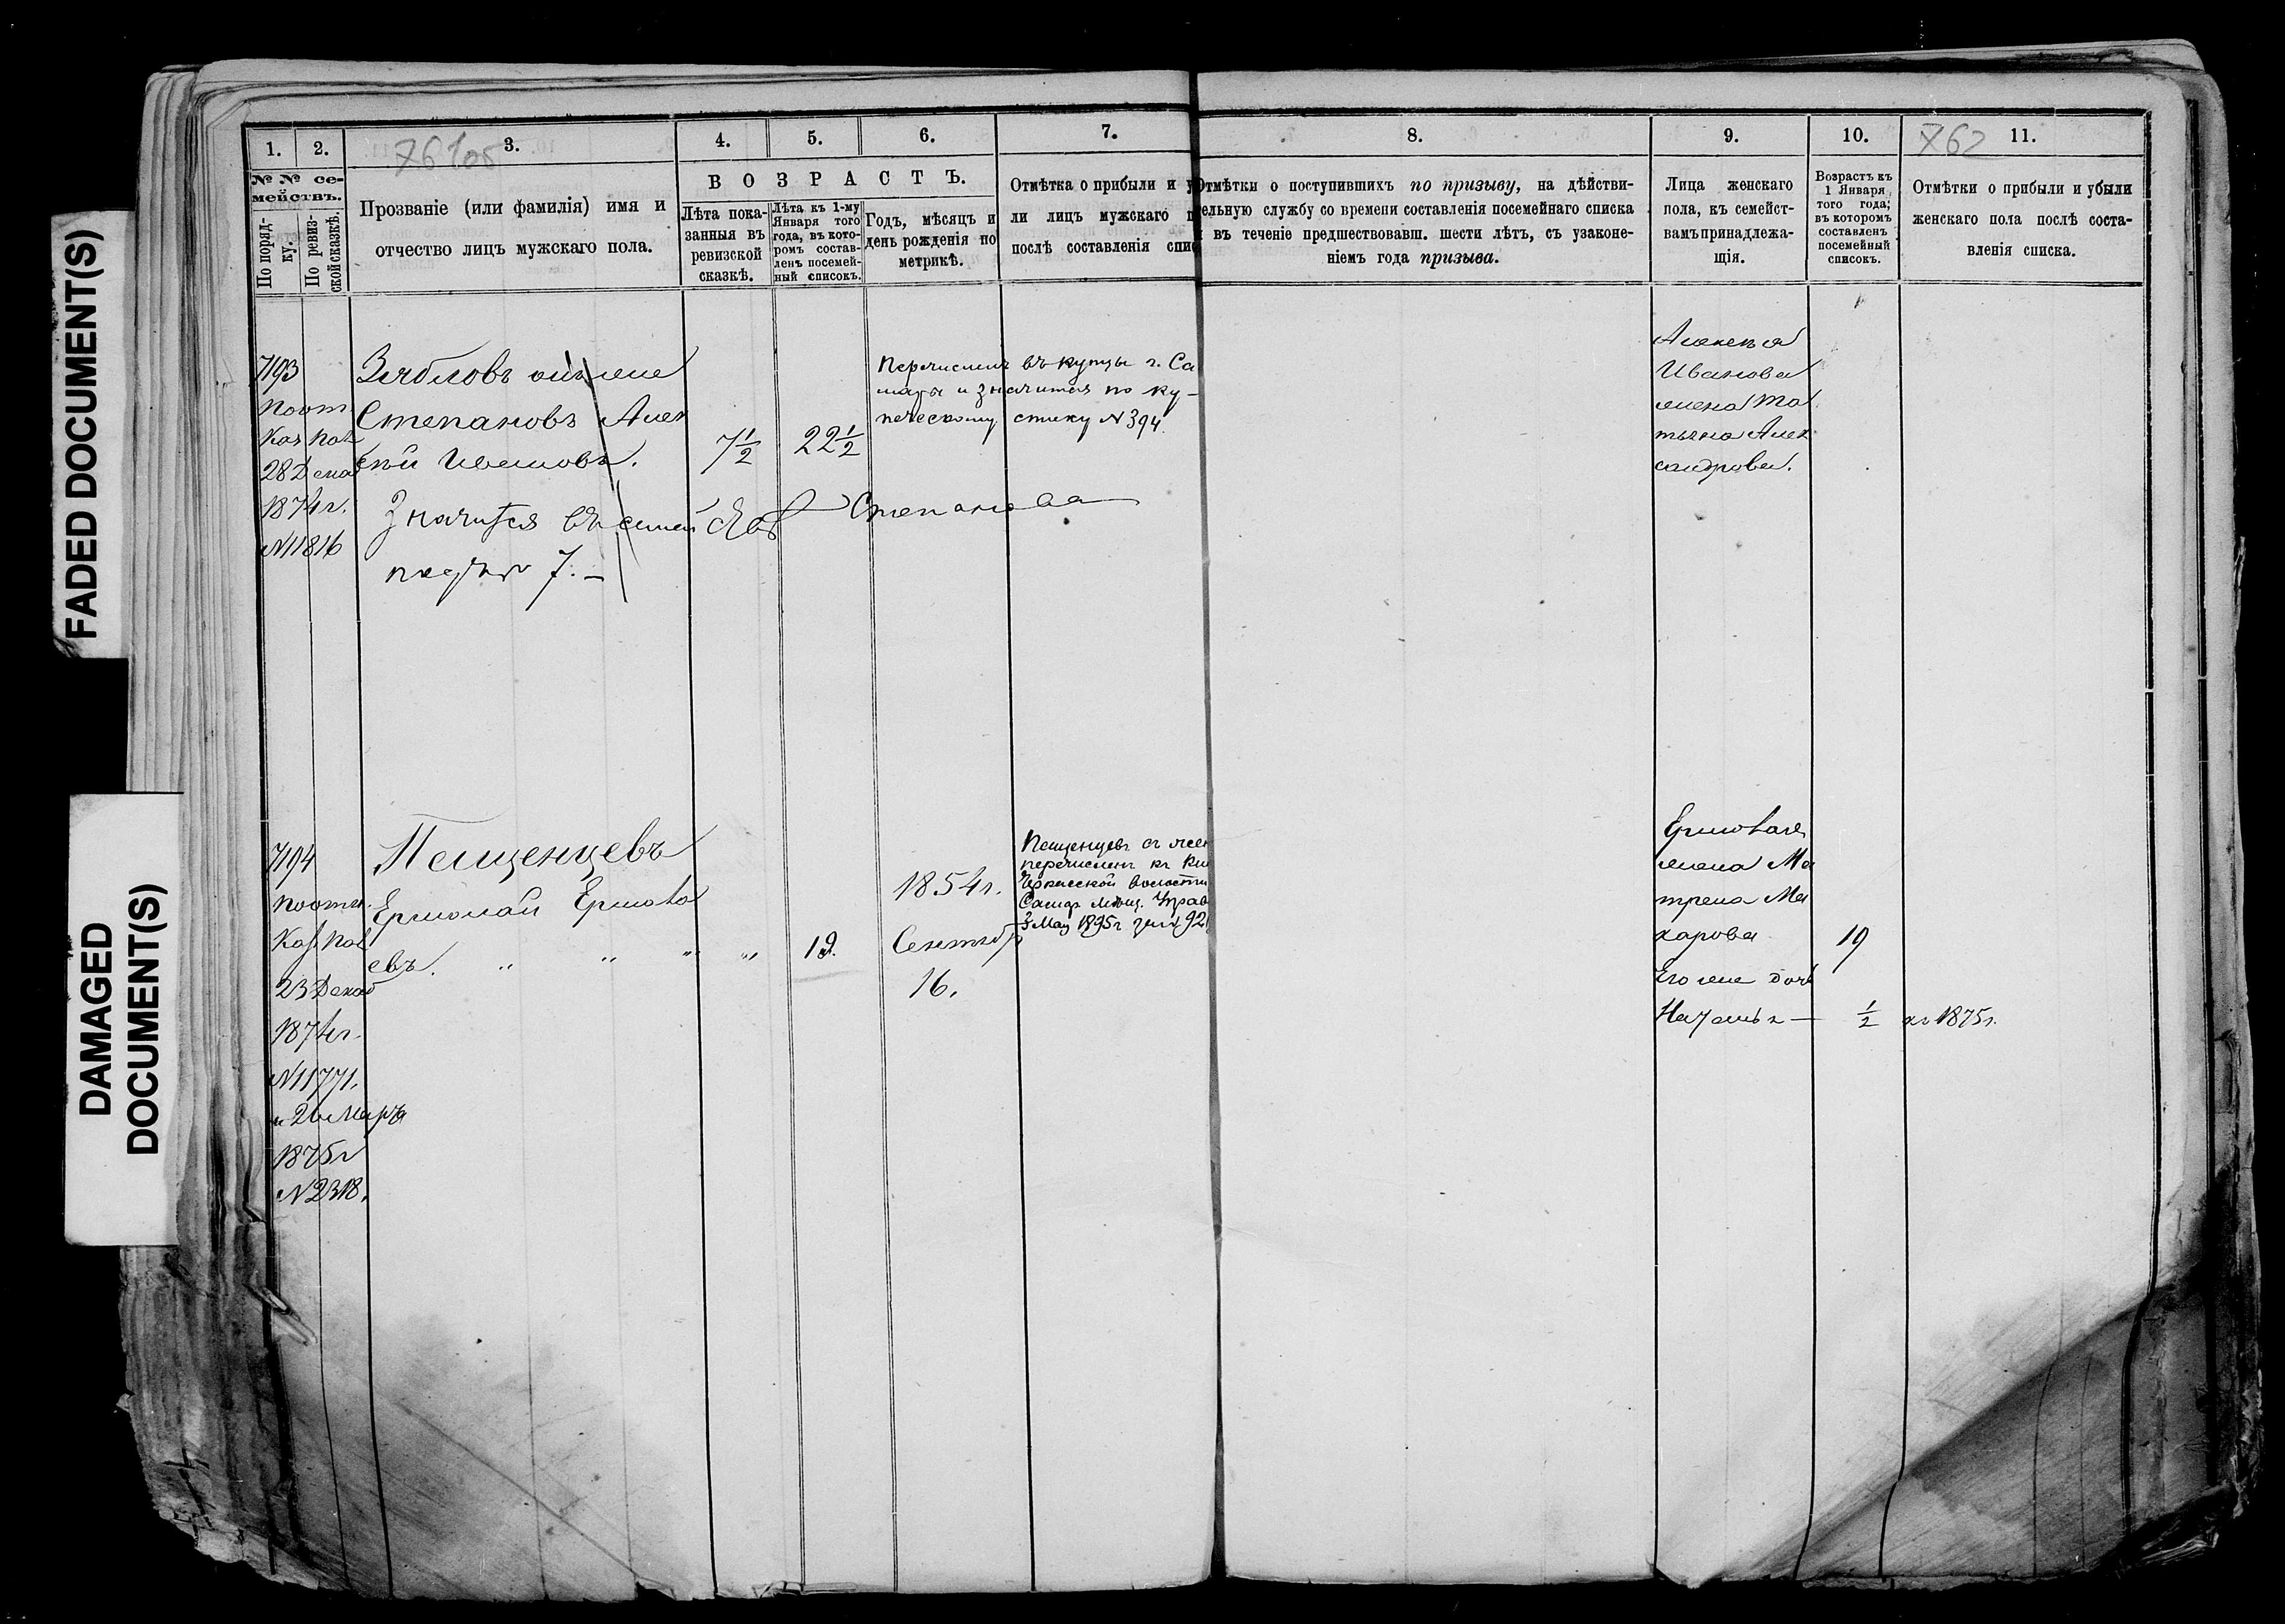 FADED DOCUMENT(S)
DAMAGED
DOCUMENT(S)
1.
2.
3.
4.
5.
6.
7.
8.
9.
10.
762
11.
№ № се-
мействъ.
По поряд-
ку.
По ревиз-
ской сказкѣ.
Прозваніе (или фамилія) имя и
отчество лицъ мужскаго пола.
ВОЗРАСТЪ.
Лѣта пока-
занныя въ
ревизской
сказкѣ.
Лѣта къ 1-му
Января того
года, въ кото-
ромъ состав-
ленъ посемей-
ный списокъ.
Годъ, мѣсяцъ и
день рожденія по
метрикѣ.
Отмѣтка о прибыли и у
ли лицъ мужскаго п
послѣ составленія спис
Отмѣтки о поступившихъ по призыву, на дѣйстви-
ельную службу со времени составленія посемейнаго списка
въ теченіе предшествовавш. шести лѣтъ, съ узаконе-
ніемъ года призыва.
Лица женскаго
пола, къ семейст-
вамъ принадлежа-
щія.
Возрастъ къ
1 Января
того года,
въ которомъ
составленъ
посемейный
списокъ.
Отмѣтки о прибыли и убыли
женскаго пола послѣ соста-
вленія списка.
7193
Поот.
Каз Пал
28 Дека
1874 г.
№ 11816
Степановъ Алек
сѣй Ивановъ.
7½
22½
Значится въ семей Степанова
7. –
Перечисленъ въ купцы г. Са
мары и значится по ку-
печескому списку № 394.
Алексѣя
Иванова
жена Та
тьяна Алек
сандрова.
7194
Поотн.
Каз Пал
23 Декаб
1874 г.
№ 11771.
и 26 Марта
1875 г
№ 2318.
Пещенцевъ
Ермолай Ермола
евъ. " " " "
19.
1854 г.
Сентябр
16.
Пещенцевъ съ жен
перечисленъ къ
Черкасской волости
Самар. Мѣщ. Управ
3 Мая 1895 г за № 92
Ермолая
жена Ма
трена Ма
карова
19
Его же дочь
Наталья —
½
къ 1875 г.